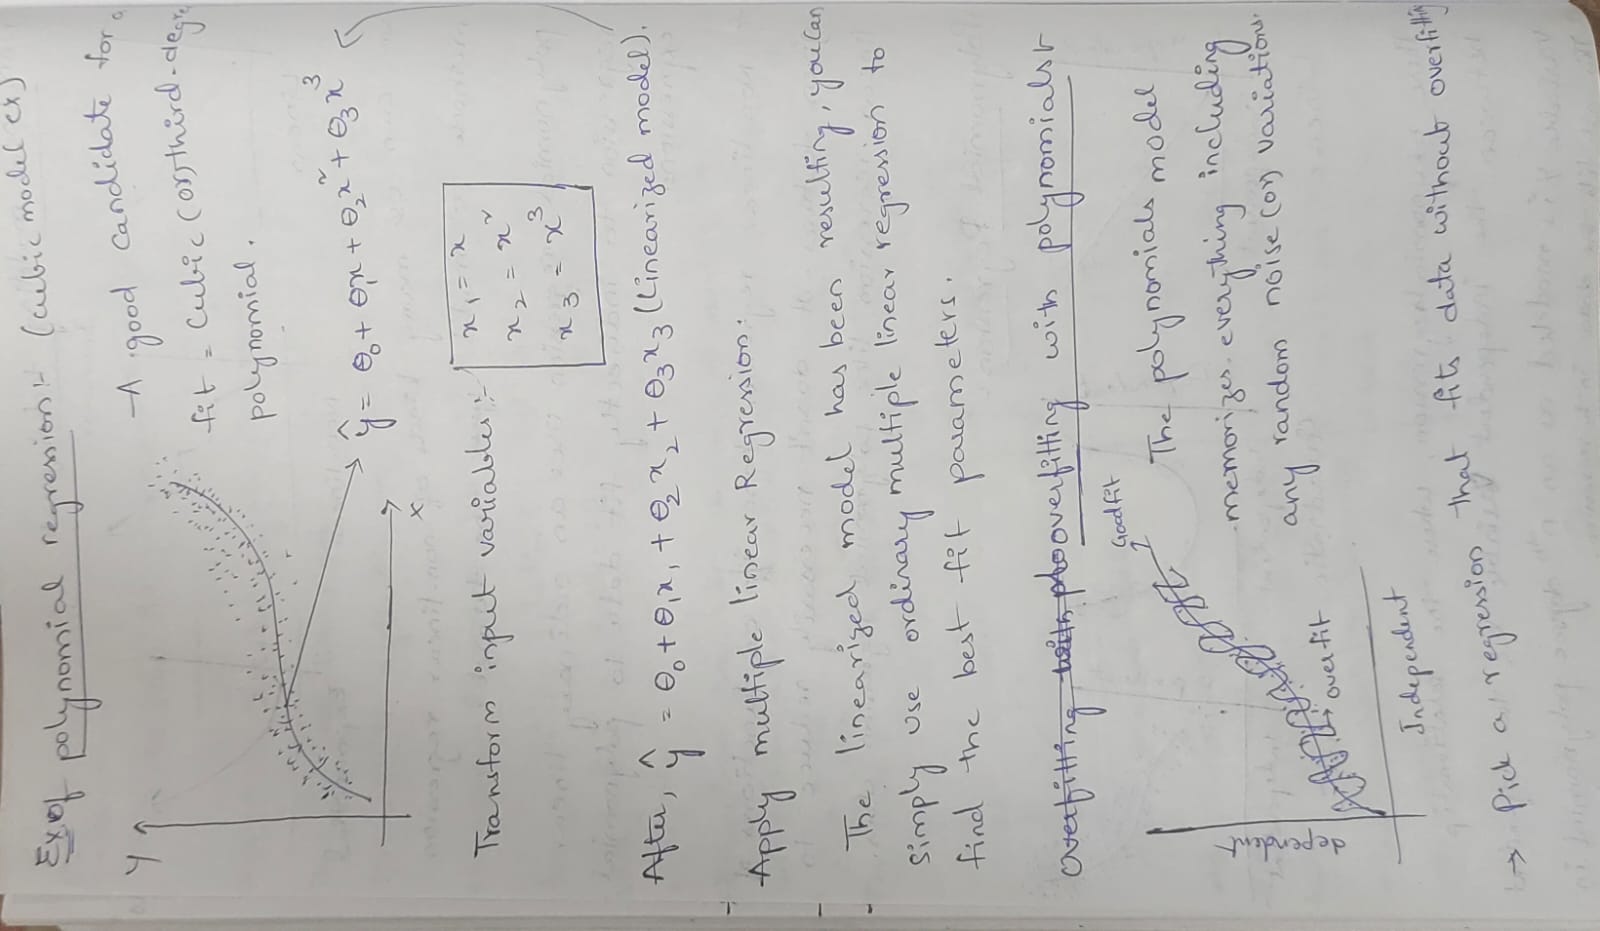 Ex of polynomial regression:- (cubic model ex)
Y
- A good candidate for a
fit = Cubic (or) third-degre
polynomial.
ŷ = θ₀ + θ₁x + θ₂x² + θ₃x³
x
Transform input variables :-
x₁ = x
x₂ = x²
x₃ = x³
After, ŷ = θ₀ + θ₁x₁ + θ₂x₂ + θ₃x₃ (Linearized model).
Apply multiple linear Regression.
The linearized model has been resulting, you can
simply use ordinary multiple linear regression to
find the best fit parameters.
overfitting with polynomials:-
Good fit
The polynomials model
memorizes everything including
any random noise (or) variations.
dependent
over fit
Independent
→ Pick a regression that fits data without overfitting